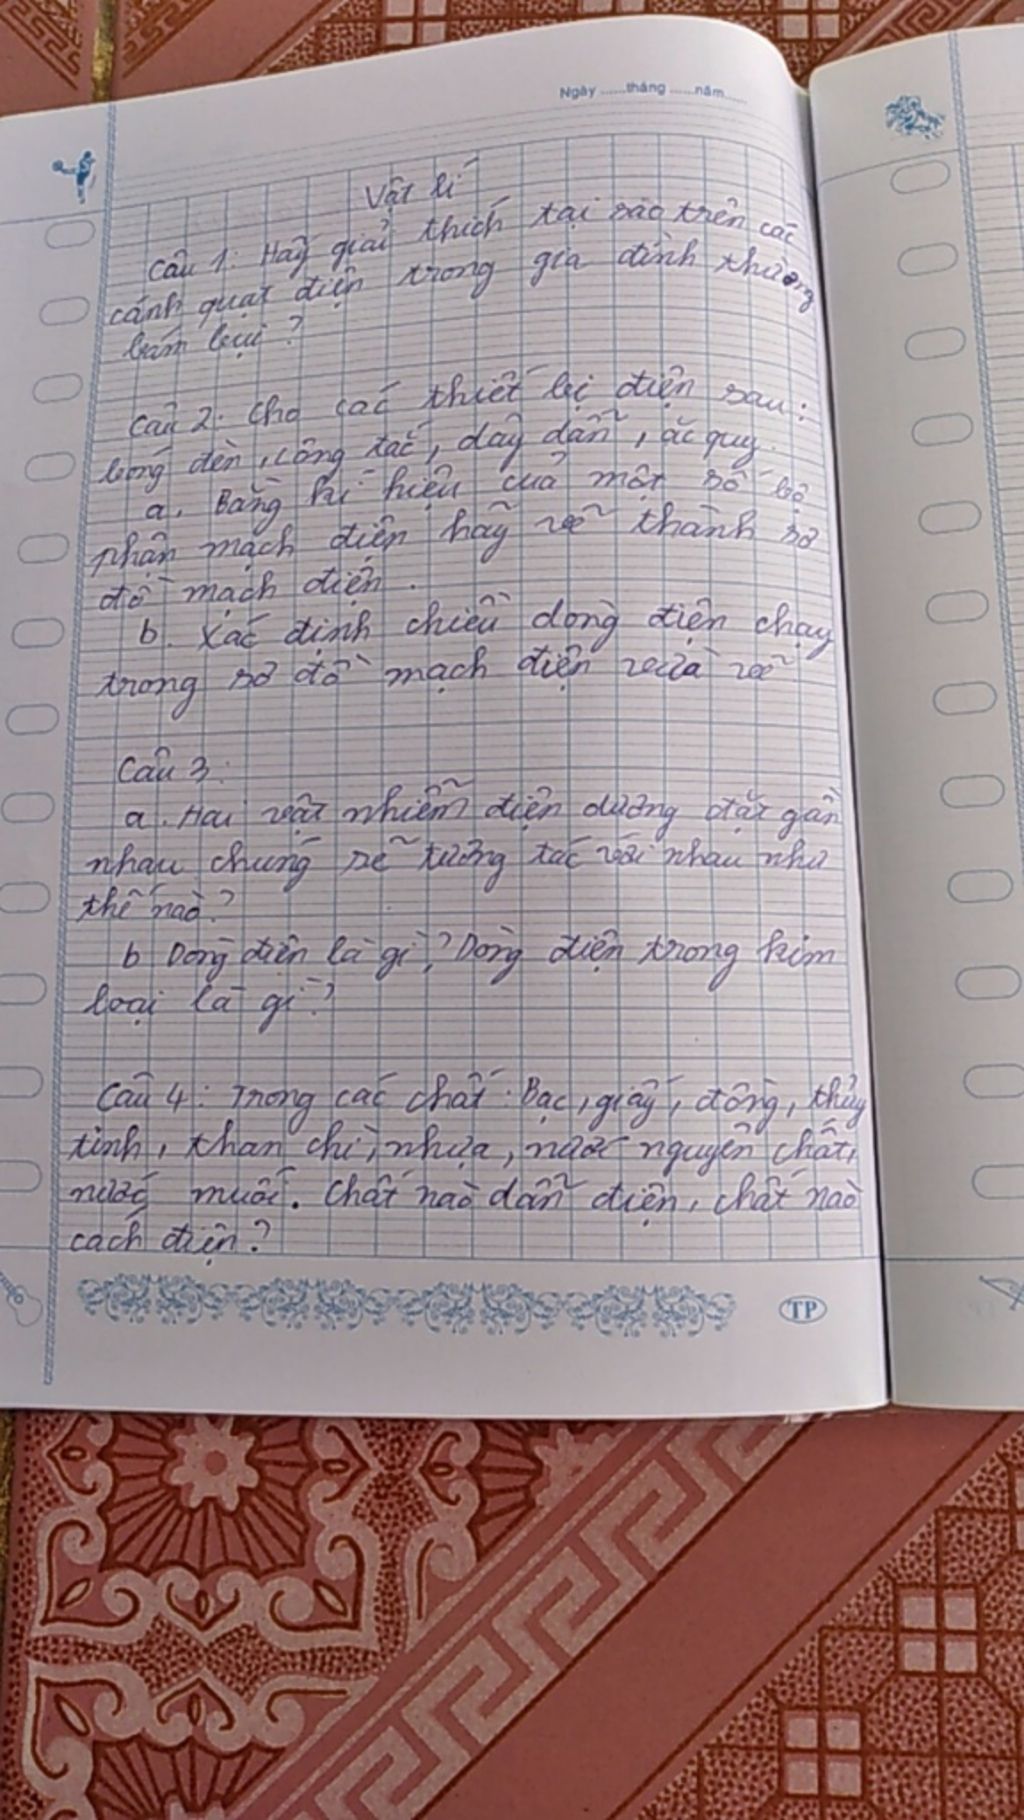 Ngày ......tháng ......năm......
Vật lí
Câu 1: Hãy giải thích tại sao trên các
cánh quạt điện trong gia đình thường
bám bụi?
Câu 2: Cho các thiết bị điện sau:
bóng đèn, công tắc, dây dẫn, ắc quy.
a. Bằng kí hiệu của một số bộ
phận mạch điện hãy vẽ thành sơ
đồ mạch điện.
b. Xác định chiều dòng điện chạy
trong sơ đồ mạch điện vừa vẽ
Câu 3:
a. Hai vật nhiễm điện dương đặt gần
nhau chúng sẽ tương tác với nhau như
thế nào?
b Dòng điện là gì? Dòng điện trong kim
loại là gì?
Câu 4: Trong các chất: Bạc, giấy, đồng, thủy
tinh, than chì, nhựa, nước nguyên chất,
nước muối. Chất nào dẫn điện, chất nào
cách điện?
TP